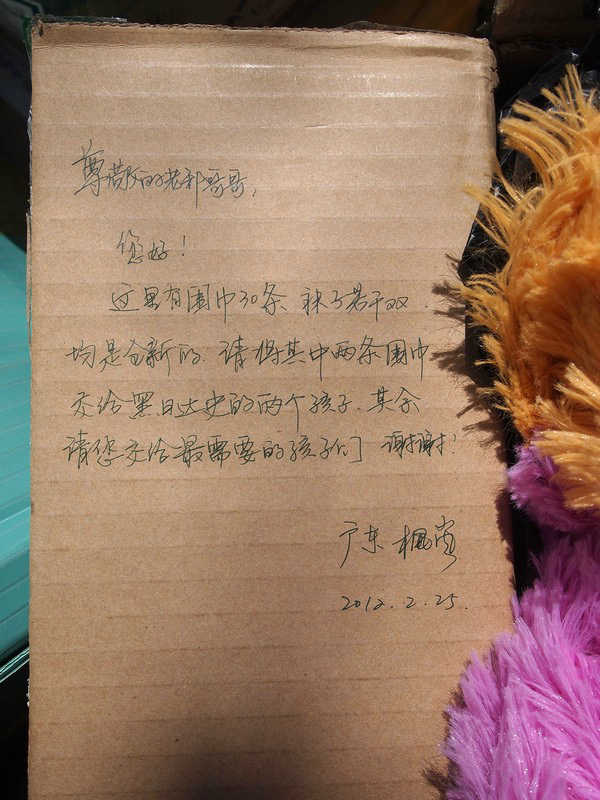 尊敬的老郭哥哥,
您好!
这里有围巾30条、袜子若干双.
均是全新的.请将其中两条围巾
交给黑日达史的两个孩子.其余
请您交给最需要的孩子们 谢谢!
广东 枫
2012.2.25.